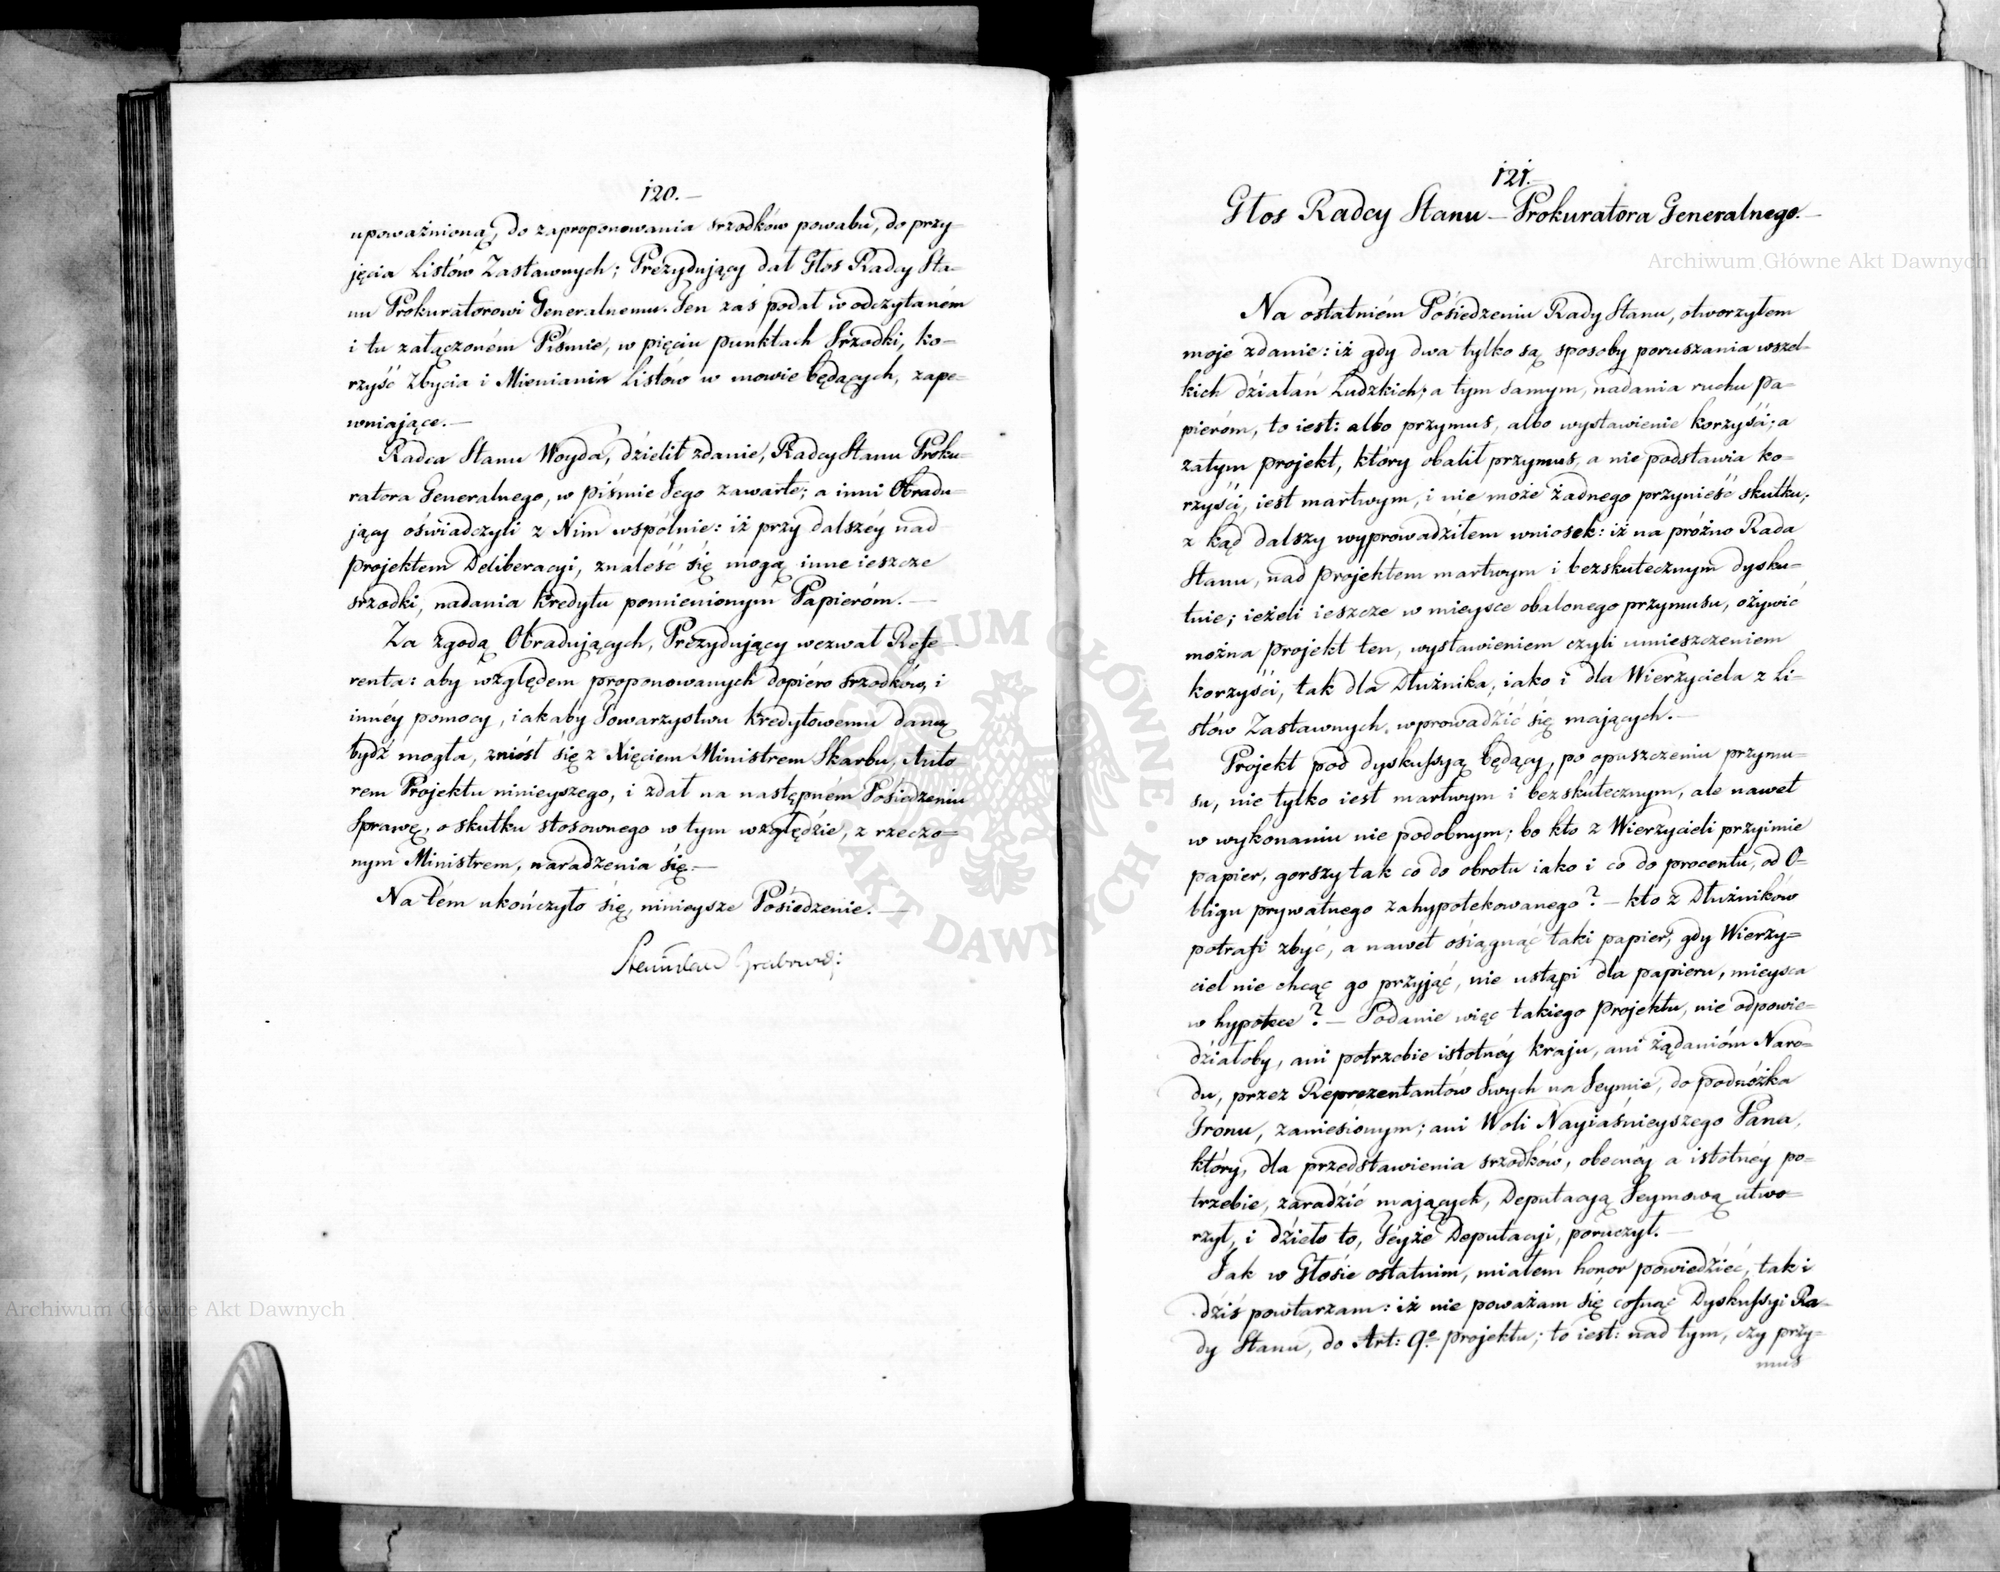 120.–
upoważnioną, do zaproponowania srzodków powabu, do przy=
jęcia Listów Zastawnych; Prezydujący dał Głos Radcy Sta=
nu Prokuratorowi Generalnemu. Ten zaś podał w odczytaném
i tu załączoném Piśmie, w pięciu punktach Srzodki, ko=
rzyść Zbycia i Mieniania Listów w mowie będących, zape=
wniające.—
Radca Stanu Woyda, dzielił zdanie, Radcy Stanu Proku=
ratora Generalnego, w piśmie Jego zawarte; a inni Obradu=
jący oświadczyli z Nim wspólnie: iż przy dalszéy nad
projektem Deliberacyi, znaleść się mogą inne ieszcze
srzodki, nadania kredytu pomienionym Papieróm.—
Za zgodą Obradujących, Prezydujący wezwał Refe=
renta: aby względem proponowanych dopiéro srzodków, i
innéy pomocy, iakaby Towarzystwu Kredytowemu daną
bydź mogła, zniósł się z Xięciem Ministrem Skarbu, Auto
rem Projektu ninieyszego, i zdał na następném Posiedzeniu
Sprawę, o skutku stosownego w tym względzie, z rzeczo=
nym Ministrem, naradzenia się.—
Na tém ukończyło się, ninieysze Pósiedzenie.—
Stanisław Grabowski
121.
Głos Radcy Stanu — Prokuratora Generalnego.—
Na ostatniém Pósiedzeniu Rady Stanu, otworzyłem
moje zdanie: iż gdy dwa tylko są sposoby poruszania wszel=
kich działań Ludzkich; a tym samym, nadania ruchu pa=
pieróm, to iest: albo przymus, albo wystawienie korzyści; a
zatym projekt, który obalił przymus, a nie podstawia ko=
rzyści, iest martwym, i nie może żadnego przynieść skutku;
z kąd dalszy wyprowadziłem wniosek: iż na próżno Rada
Stanu, nad projektem martwym i bezskutecznym dysku=
tuie; ieżeli ieszcze w mieysce obalonego przymusu, ożywić
można projekt ten, wystawieniem czyli umieszczeniem
korzyści, tak dla Dłużnika, iako i dla Wierzyciela z Li=
stów Zastawnych, wprowadzić się mających.—
Projekt pod dyskussyą będący, po opuszczeniu przymu=
su, nie tylko iest martwym i bezskutecznym, ale nawet
w wykonaniu nie podobnym; bo kto z Wierzycieli przyimie
papier, gorszy tak co do obrotu iako i co do procentu, od O=
bligu prywatnego zahypotekowanego? — kto z Dłużników
potrafi zbyć, a nawet osiągnąć taki papier, gdy Wierzy=
ciel nie chcąc go przyjąć, nie ustąpi dla papieru, mieysca
w hypotece? — Podanie więc takiego projektu, nie odpowie=
działoby, ani potrzebie istotnéy kraju, ani żądanióm Naro=
du, przez Reprezentantów Swych na Seymie, do podnóżka
Tronu, zaniesionym; ani Woli Nayiaśnieyszego Pana,
który, dla przedstawienia srzodków, obecnéy a istotnéy po=
trzebie, zaradzić mających, Deputacyą Seymową utwo=
rzył, i dzieło to, Téyże Deputacyi, poruczył.—
Jak w Głosie ostatnim, miałem honor powiedzieć, tak i
dziś powtarzam: iż nie poważam się cofnąć Dyskussyi Ra=
dy Stanu, do Art: 9º projektu; to iest: nad tym, czy przy=
mus
Archiwum Główne Akt Dawnych
Archiwum Główne Akt Dawnych
ARCHIWUM GŁÓWNE AKT DAWNYCH